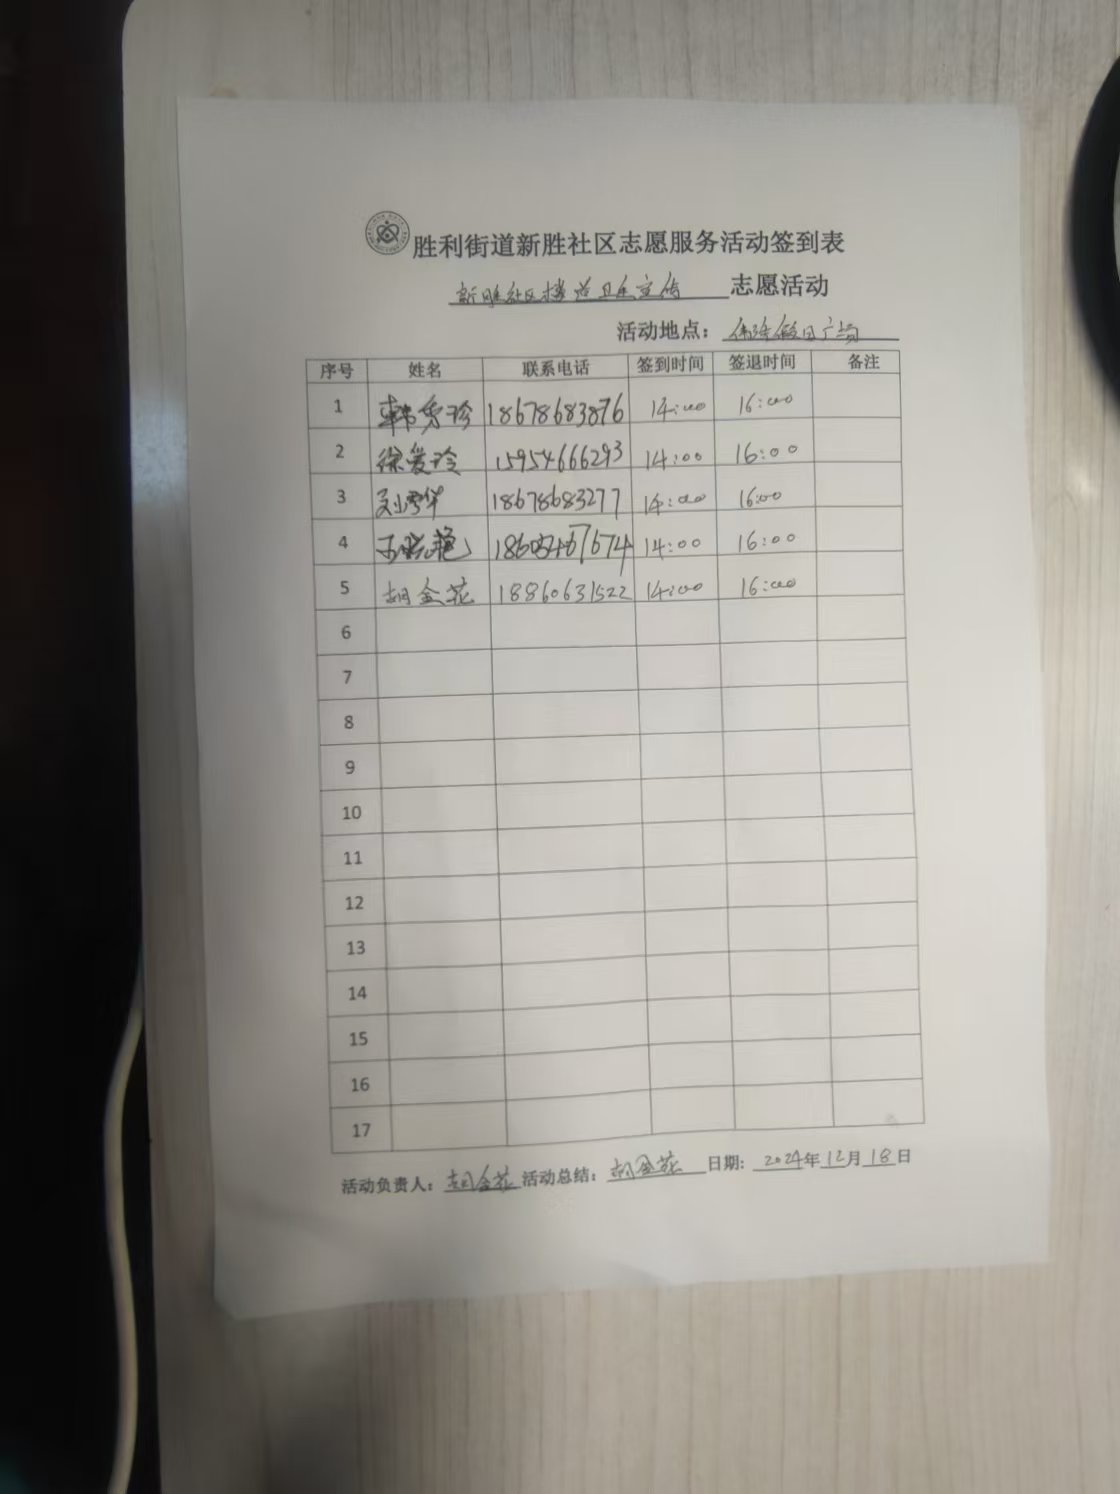 胜利街道新胜社区志愿服务活动签到表
新胜社区楼道卫生宣传 志愿活动
活动地点: 假日广场
序号 姓名 联系电话 签到时间 签退时间 备注
1 韩秀珍 18678683876 14:00 16:00
2 徐爱玲 15954666293 14:00 16:00
3 刘秀华 18678683277 14:00 16:00
4 14:00 16:00
5 胡金花 18860631522 14:00 16:00
6
7
8
9
10
11
12
13
14
15
16
17
活动负责人: 胡金花 活动总结: 胡金花 日期: 2024年12月18日